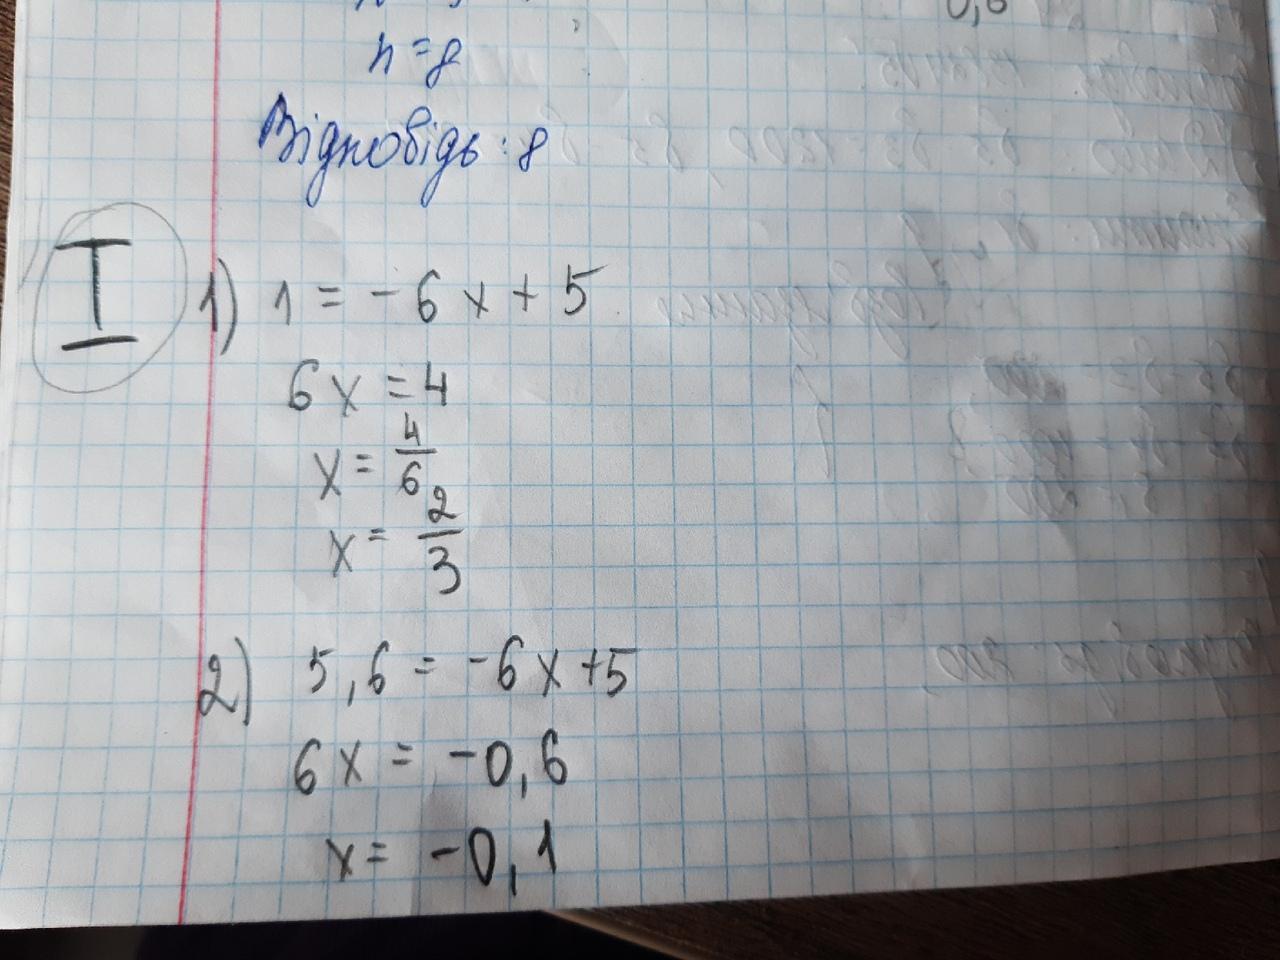 0,6
n=8
Відповідь: 8
I
1) 1 = -6x + 5
6x = 4
x = 4/6
x = 2/3
2) 5,6 = -6x +5
6x = -0,6
x = -0,1